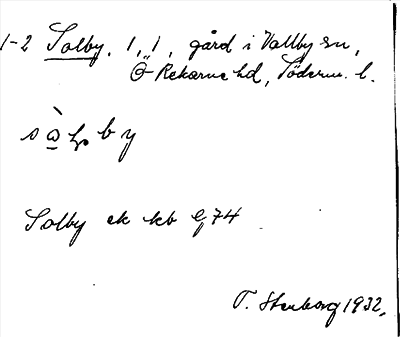 1-2 Solby. 1,1, gård i Vallby sn,
Ö Rekarne hd, Söderm. l.
sàḷby
Solby ek kb G74
T. Stenborg 1932.